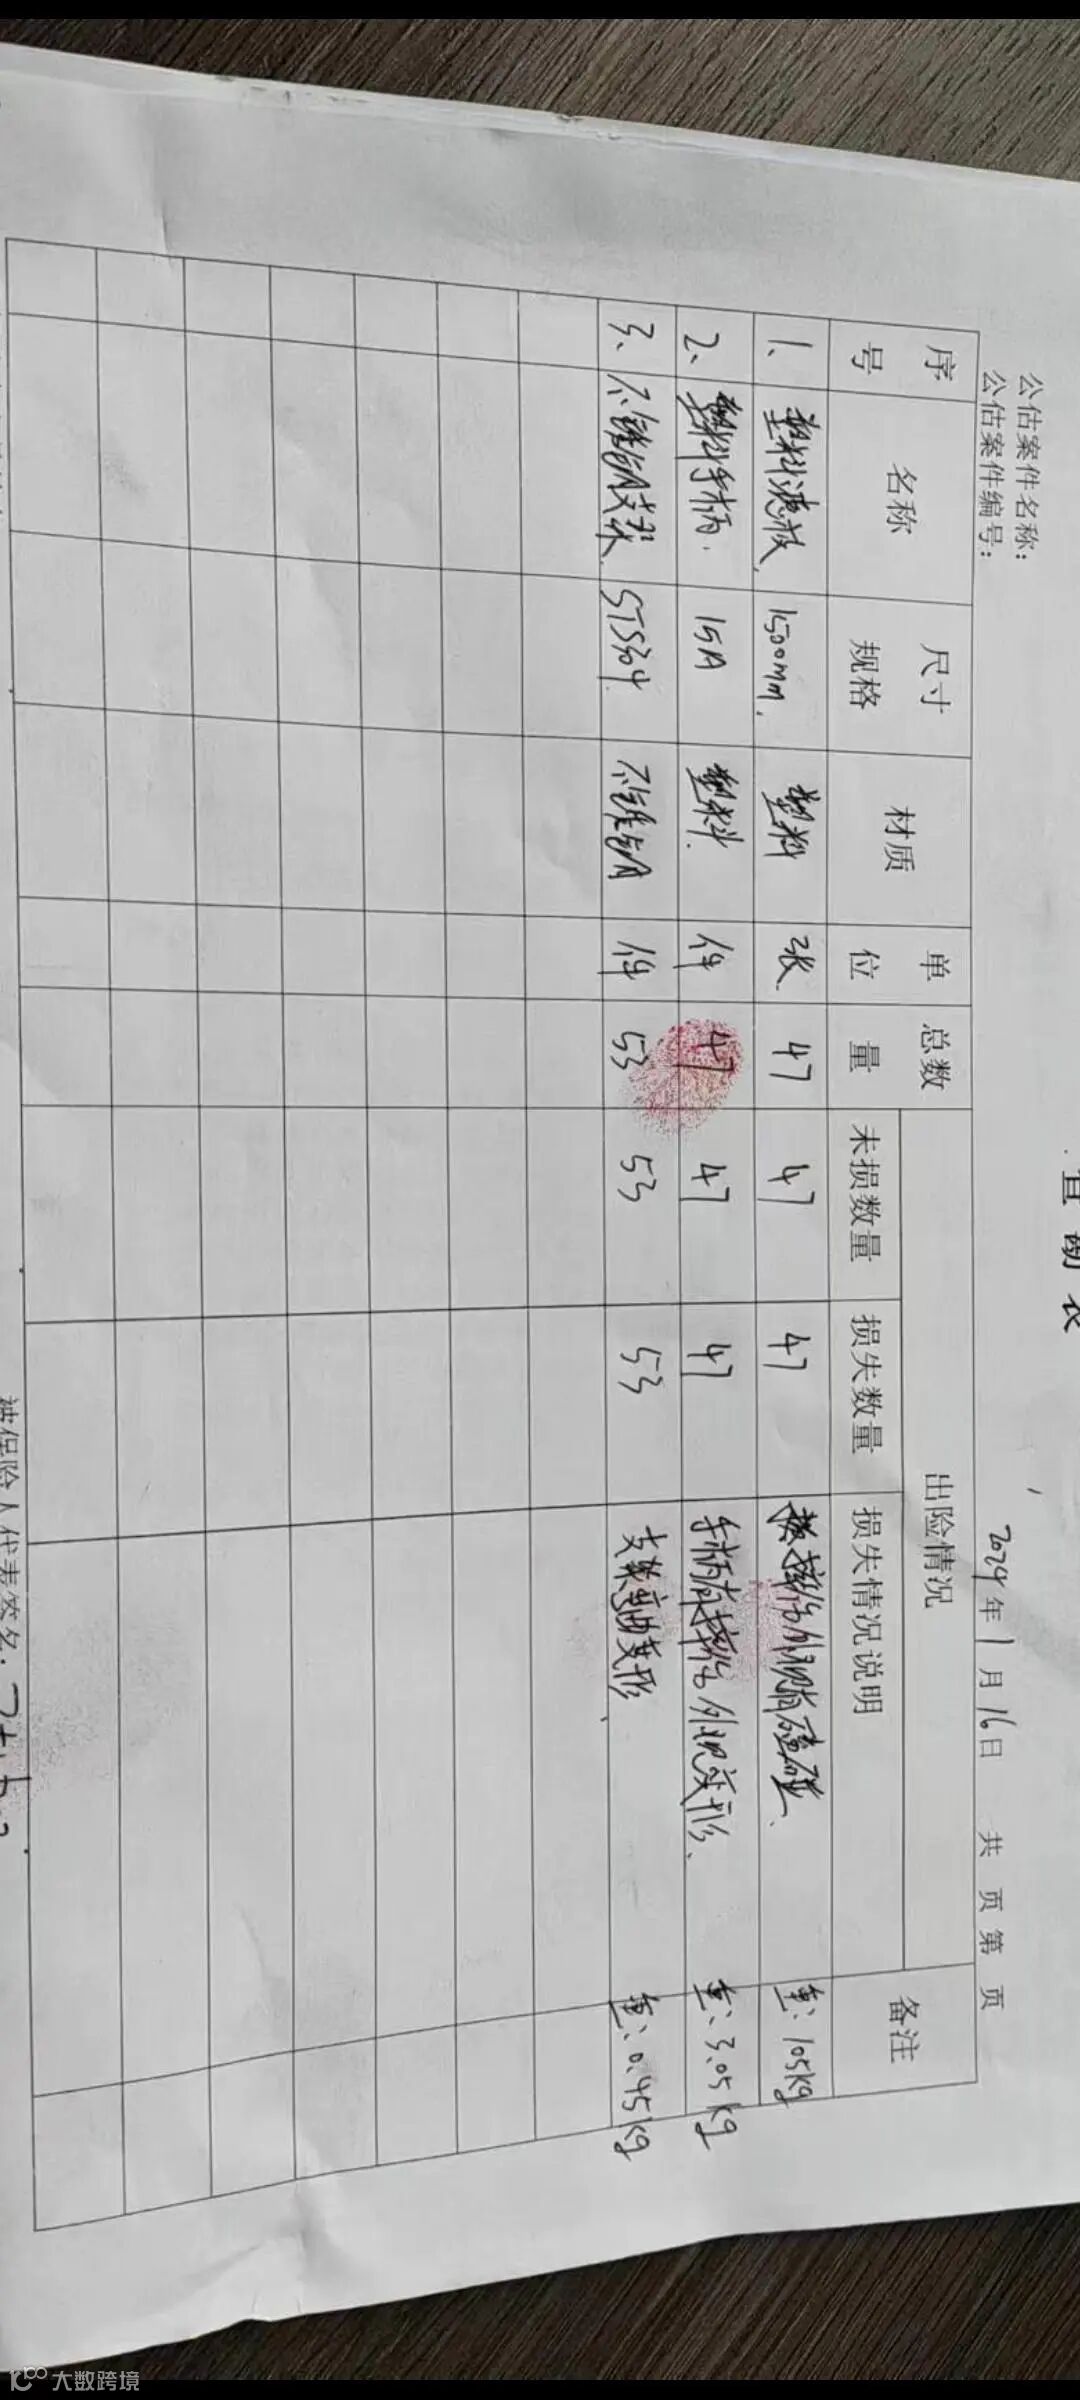 查勘表
公估案件名称：
公估案件编号：
2024年1月16日 共 页 第 页
序号 名称 尺寸规格 材质 单位 总数量 出险情况 备注
未损数量 损失数量 损失情况说明
1、 塑料滤板 1500mm 塑料 张 47 47 47 擦伤外观有磕碰 重：105kg
2、 塑料手柄 15A 塑料 件 47 47 47 手柄有擦伤外观变形 重：3.05kg
3、 不锈钢支架 STS304 不锈钢 件 53 53 53 支架弯曲变形 重：0.45kg
被保险人代表签名：
大数跨境